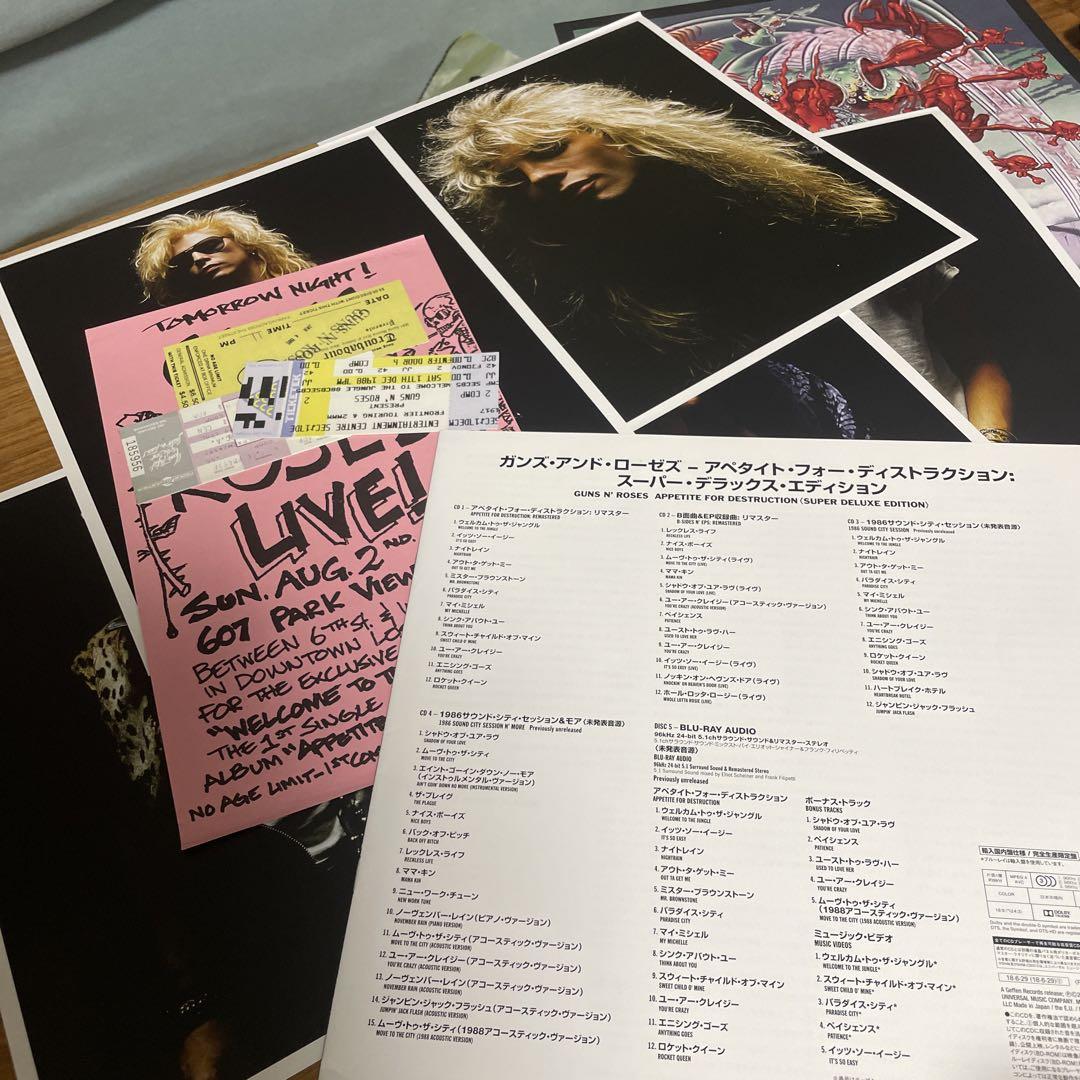 TOMORROW NIGHT!
LIVE!
SUN. AUG. 2ND.
607 PARK VIEW
BETWEEN 6TH ST. &
IN DOWNTOWN
FOR THE EXCLUSIVE
"WELCOME TO
THE 1ST SINGLE
ALBUM "APPETITE
NO AGE LIMIT-1ST COM
DATE
TIME 11 PM
GUNS N' ROSES
Troubadour
$6.50
$4.50
ENTERTAINMENT CENTRE
FRONTIER TOURING & 2MMM
PRESENT
GUNS N' ROSES
WELCOME TO THE JUNGLE
SAT 17TH DEC 1988 7PM
ENTER DOOR
185956
ガンズ・アンド・ローゼズ – アペタイト・フォー・ディストラクション:
スーパー・デラックス・エディション
GUNS N' ROSES APPETITE FOR DESTRUCTION (SUPER DELUXE EDITION)
CD 1 – アペタイト・フォー・ディストラクション: リマスター
APPETITE FOR DESTRUCTION: REMASTERED
1. ウェルカム・トゥ・ザ・ジャングル
WELCOME TO THE JUNGLE
2. イッツ・ソー・イージー
IT'S SO EASY
3. ナイトレイン
NIGHTRAIN
4. アウト・タ・ゲット・ミー
OUT TA GET ME
5. ミスター・ブラウンストーン
MR. BROWNSTONE
6. パラダイス・シティ
PARADISE CITY
7. マイ・ミシェル
MY MICHELLE
8. シンク・アバウト・ユー
THINK ABOUT YOU
9. スウィート・チャイルド・オブ・マイン
SWEET CHILD O' MINE
10. ユー・アー・クレイジー
YOU'RE CRAZY
11. エニシング・ゴーズ
ANYTHING GOES
12. ロケット・クイーン
ROCKET QUEEN
CD 2 – B面曲&EP収録曲: リマスター
B-SIDES N' EPS: REMASTERED
1. レックレス・ライフ
RECKLESS LIFE
2. ナイス・ボーイズ
NICE BOYS
3. ムーヴ・トゥ・ザ・シティ(ライヴ)
MOVE TO THE CITY (LIVE)
4. ママ・キン
MAMA KIN
5. シャドウ・オブ・ユア・ラヴ(ライヴ)
SHADOW OF YOUR LOVE (LIVE)
6. ユー・アー・クレイジー(アコースティック・ヴァージョン)
YOU'RE CRAZY (ACOUSTIC VERSION)
7. ペイシェンス
PATIENCE
8. ユースト・トゥ・ラヴ・ハー
USED TO LOVE HER
9. ユー・アー・クレイジー
YOU'RE CRAZY
10. イッツ・ソー・イージー(ライヴ)
IT'S SO EASY (LIVE)
11. ノッキン・オン・ヘヴンズ・ドア(ライヴ)
KNOCKIN' ON HEAVEN'S DOOR (LIVE)
12. ホール・ロッタ・ロージー(ライヴ)
WHOLE LOTTA ROSIE (LIVE)
CD 3 – 1986サウンド・シティ・セッション(未発表音源)
1986 SOUND CITY SESSION Previously unreleased
1. ウェルカム・トゥ・ザ・ジャングル
WELCOME TO THE JUNGLE
2. ナイトレイン
NIGHTRAIN
3. アウト・タ・ゲット・ミー
OUT TA GET ME
4. パラダイス・シティ
PARADISE CITY
5. マイ・ミシェル
MY MICHELLE
6. シンク・アバウト・ユー
THINK ABOUT YOU
7. ユー・アー・クレイジー
YOU'RE CRAZY
8. エニシング・ゴーズ
ANYTHING GOES
9. ロケット・クイーン
ROCKET QUEEN
10. シャドウ・オブ・ユア・ラヴ
SHADOW OF YOUR LOVE
11. ハートブレイク・ホテル
HEARTBREAK HOTEL
12. ジャンピン・ジャック・フラッシュ
JUMPIN' JACK FLASH
CD 4 – 1986サウンド・シティ・セッション&モア(未発表音源)
1986 SOUND CITY SESSION N' MORE Previously unreleased
1. シャドウ・オブ・ユア・ラヴ
SHADOW OF YOUR LOVE
2. ムーヴ・トゥ・ザ・シティ
MOVE TO THE CITY
3. エイント・ゴーイン・ダウン・ノー・モア
(インストゥルメンタル・ヴァージョン)
AIN'T GOIN' DOWN NO MORE (INSTRUMENTAL VERSION)
4. ザ・プレイグ
THE PLAGUE
5. ナイス・ボーイズ
NICE BOYS
6. バック・オフ・ビッチ
BACK OFF BITCH
7. レックレス・ライフ
RECKLESS LIFE
8. ママ・キン
MAMA KIN
9. ニュー・ワーク・チューン
NEW WORK TUNE
10. ノーヴェンバー・レイン(ピアノ・ヴァージョン)
NOVEMBER RAIN (PIANO VERSION)
11. ムーヴ・トゥ・ザ・シティ(アコースティック・ヴァージョン)
MOVE TO THE CITY (ACOUSTIC VERSION)
12. ユー・アー・クレイジー(アコースティック・ヴァージョン)
YOU'RE CRAZY (ACOUSTIC VERSION)
13. ノーヴェンバー・レイン(アコースティック・ヴァージョン)
NOVEMBER RAIN (ACOUSTIC VERSION)
14. ジャンピン・ジャック・フラッシュ(アコースティック・ヴァージョン)
JUMPIN' JACK FLASH (ACOUSTIC VERSION)
15. ムーヴ・トゥ・ザ・シティ(1988アコースティック・ヴァージョン)
MOVE TO THE CITY (1988 ACOUSTIC VERSION)
DISC 5 – BLU-RAY AUDIO
96kHz 24-bit 5.1chサラウンド・サウンド&リマスター・ステレオ
5.1chサラウンド・サウンド・ミックスト・バイ・エリオット・シャイナー&フランク・フィリペッティ
(未発表音源)
BLU-RAY AUDIO
96kHz 24-bit 5.1 Surround Sound & Remastered Stereo
5.1 Surround Sound mixed by Elliot Scheiner and Frank Filipetti
Previously unreleased
アペタイト・フォー・ディストラクション
APPETITE FOR DESTRUCTION
1. ウェルカム・トゥ・ザ・ジャングル
WELCOME TO THE JUNGLE
2. イッツ・ソー・イージー
IT'S SO EASY
3. ナイトレイン
NIGHTRAIN
4. アウト・タ・ゲット・ミー
OUT TA GET ME
5. ミスター・ブラウンストーン
MR. BROWNSTONE
6. パラダイス・シティ
PARADISE CITY
7. マイ・ミシェル
MY MICHELLE
8. シンク・アバウト・ユー
THINK ABOUT YOU
9. スウィート・チャイルド・オブ・マイン
SWEET CHILD O' MINE
10. ユー・アー・クレイジー
YOU'RE CRAZY
11. エニシング・ゴーズ
ANYTHING GOES
12. ロケット・クイーン
ROCKET QUEEN
ボーナス・トラック
BONUS TRACKS
1. シャドウ・オブ・ユア・ラヴ
SHADOW OF YOUR LOVE
2. ペイシェンス
PATIENCE
3. ユースト・トゥ・ラヴ・ハー
USED TO LOVE HER
4. ユー・アー・クレイジー
YOU'RE CRAZY
5. ムーヴ・トゥ・ザ・シティ
(1988アコースティック・ヴァージョン)
MOVE TO THE CITY (1988 ACOUSTIC VERSION)
ミュージック・ビデオ
MUSIC VIDEOS
1. ウェルカム・トゥ・ザ・ジャングル*
WELCOME TO THE JUNGLE*
2. スウィート・チャイルド・オブ・マイン*
SWEET CHILD O' MINE*
3. パラダイス・シティ*
PARADISE CITY*
4. ペイシェンス*
PATIENCE*
5. イッツ・ソー・イージー
IT'S SO EASY
輸入国内盤仕様 / 完全生産限定盤
COLOR
DOLBY
18-6-29 (18-6-29)
A Geffen Records release;
UNIVERSAL MUSIC COMPANY.
LLC Made in Japan / the E.U. /